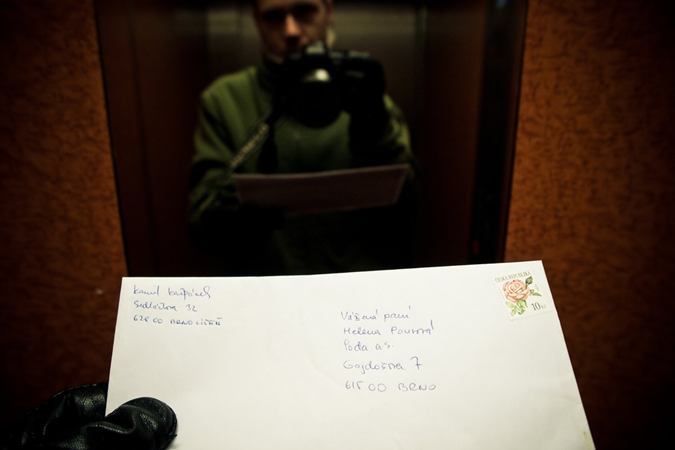 Kamil
32
628 00 BRNO LÍŠEŇ
ČESKÁ REPUBLIKA
10 Kč
Vážená paní
Helena
Poda a.s.
Gajdošova 7
615 00 BRNO